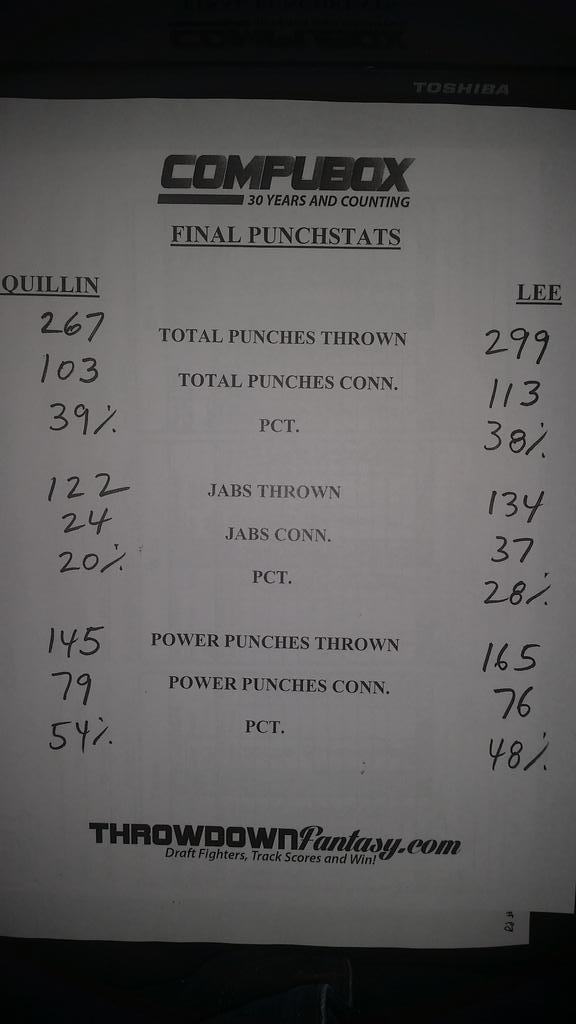 TOSHIBA
COMPUBOX
30 YEARS AND COUNTING
FINAL PUNCHSTATS
QUILLIN LEE
267 TOTAL PUNCHES THROWN 299
103 TOTAL PUNCHES CONN. 113
39% PCT. 38%
122 JABS THROWN 134
24 JABS CONN. 37
20% PCT. 28%
145 POWER PUNCHES THROWN 165
79 POWER PUNCHES CONN. 76
54% PCT. 48%
THROWDOWNFantasy.com
Draft Fighters, Track Scores and Win!